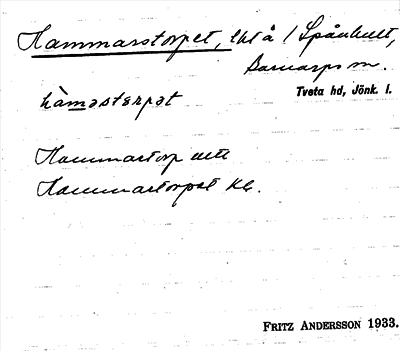 Hammarstorpet, lht å 1 Spånhult,
Barnarps sn.
Tveta hd, Jönk. l.
hàmastɛrpat
Hammartorp
Hammartorpet Kb.
FRITZ ANDERSSON 1933.